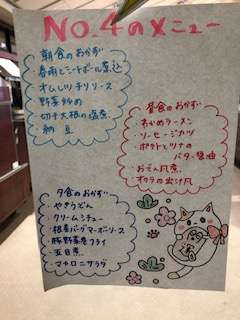 No.4のメニュー
朝食のおかず
・春雨とミートボール煮込
・オムレツチリソース
・野菜炒め
・切干大根の塩煮
・納豆
昼食のおかず
・わかめラーメン
・ソーセージカツ
・ポテトとツナの
バター醤油
・おでん風煮
・オクラのお汁風
夕食のおかず
・やきうどん
・クリームシチュー
・根菜バーグマーボーソース
・豚野菜巻フライ
・五目煮
・マカロニサラダ